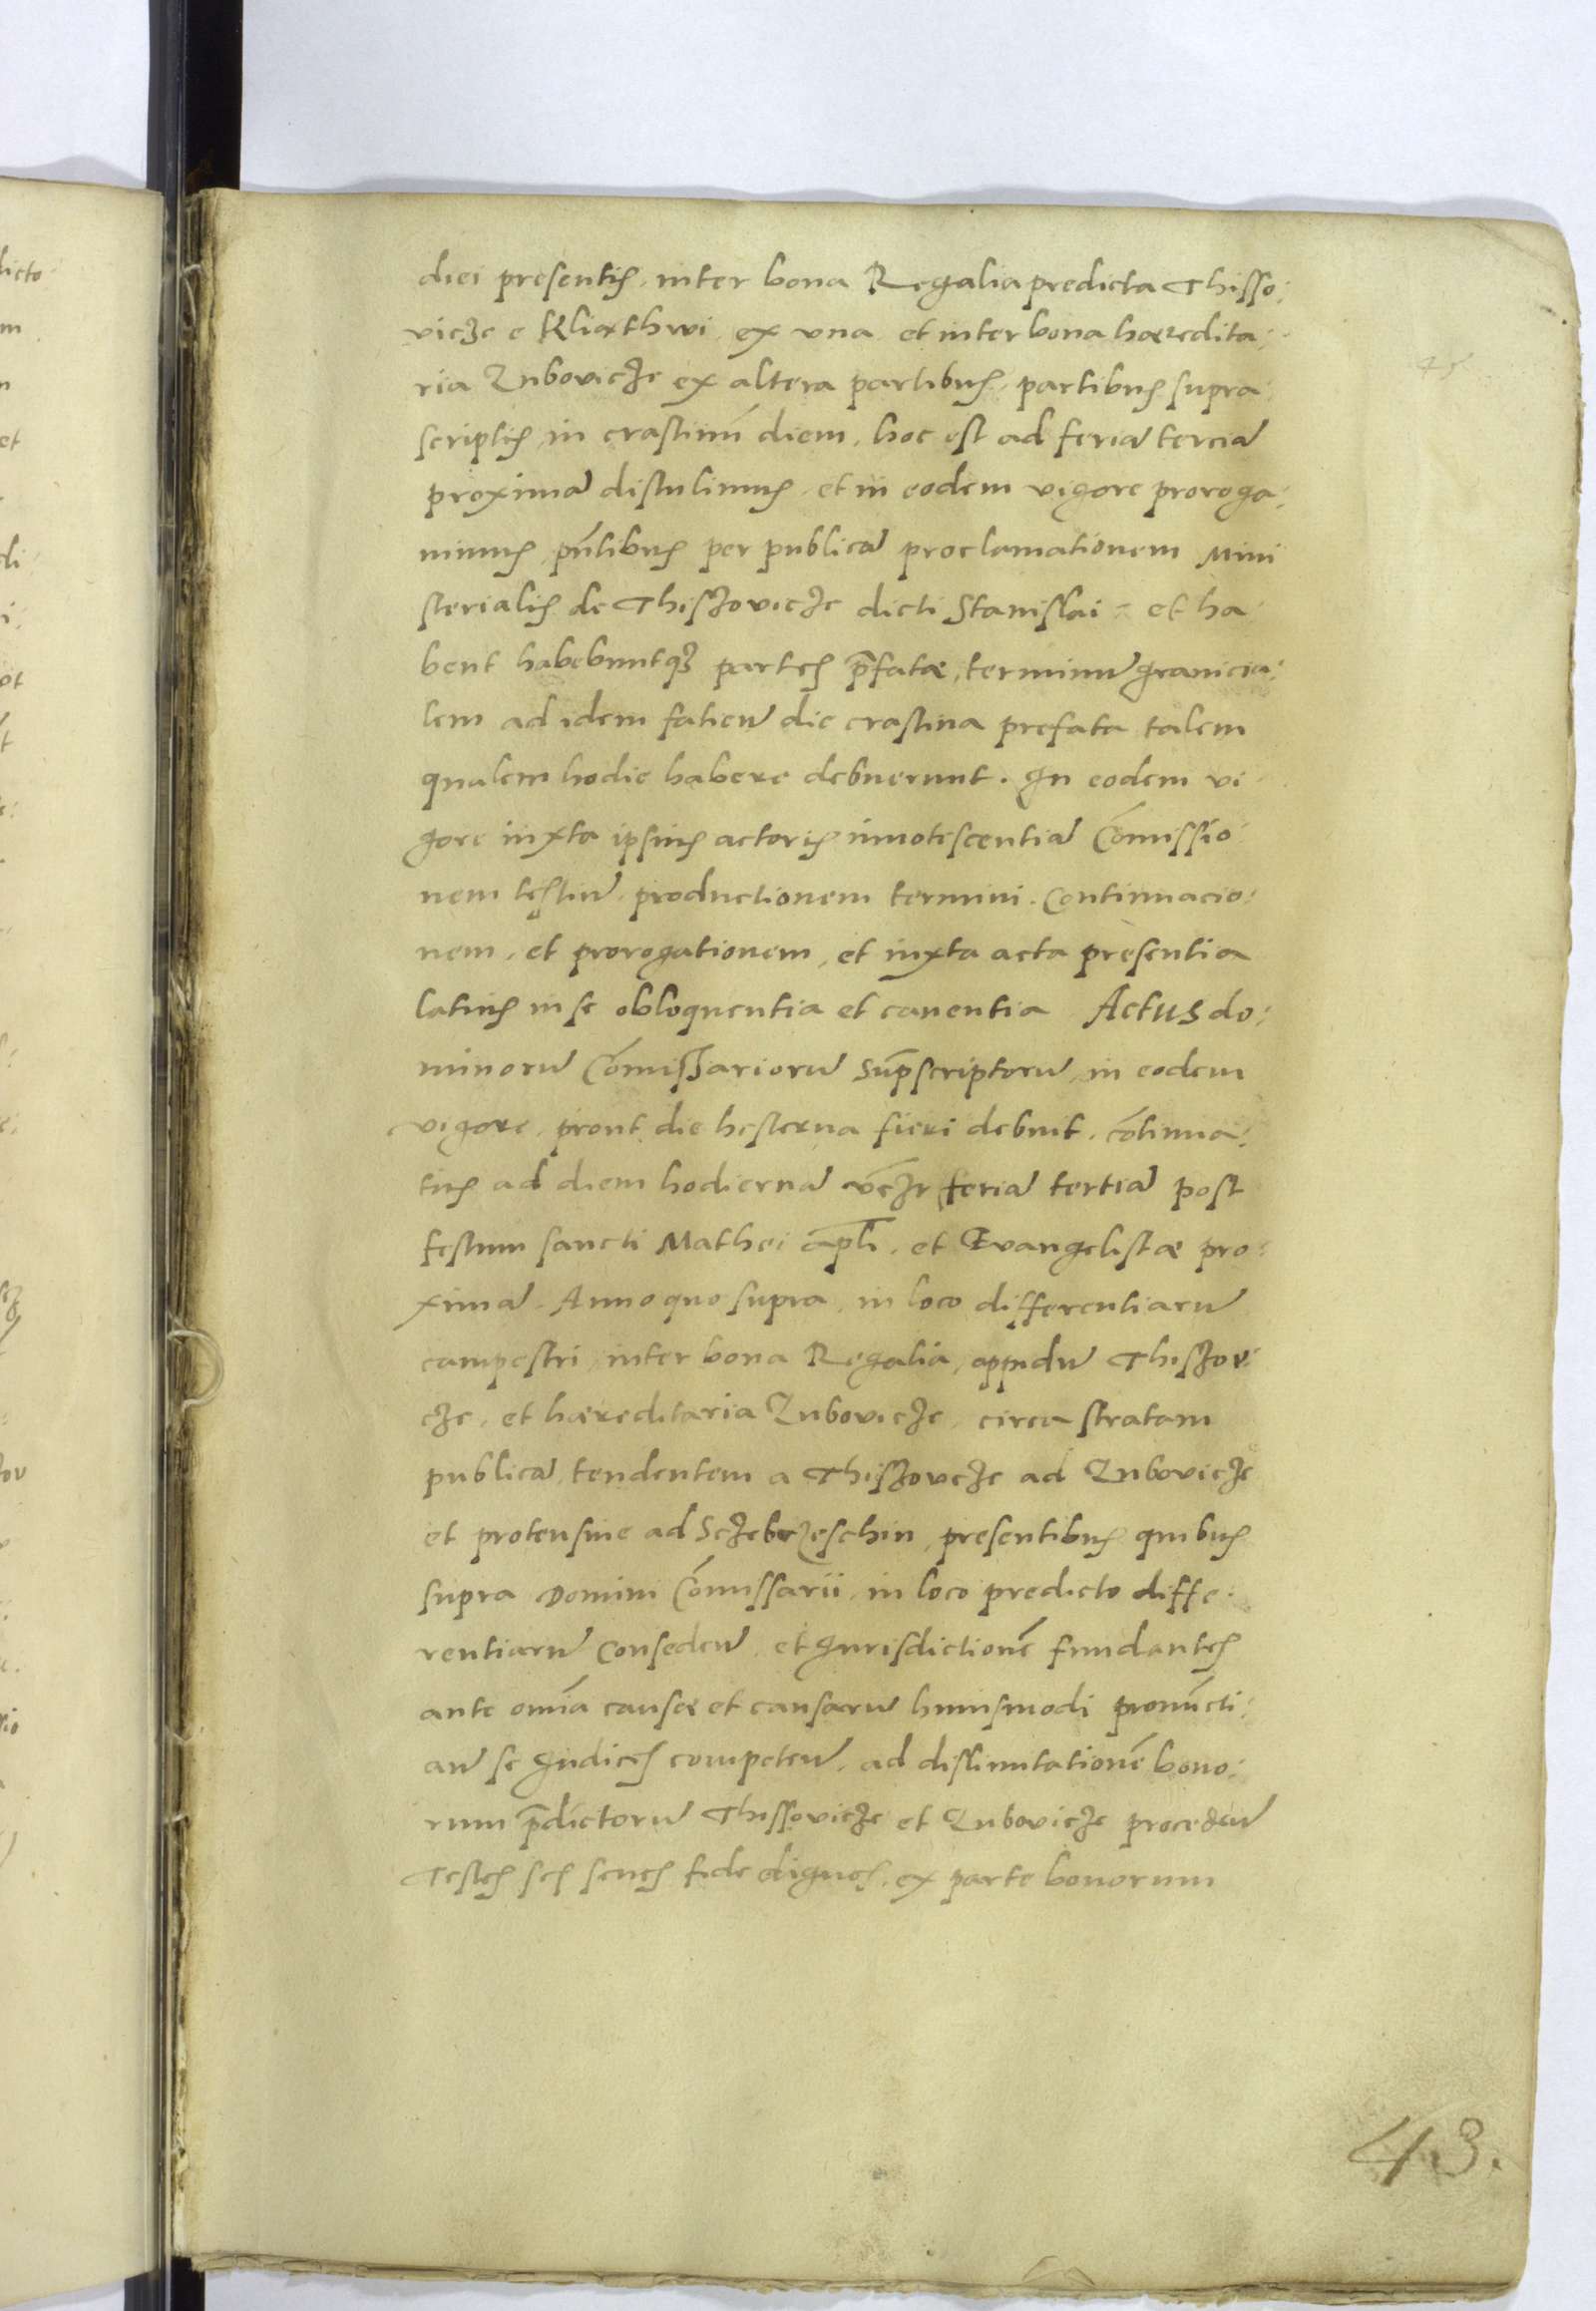 diei presentis, inter bona Regalia predicta Thisso:
vicze e Kliathwi, ex vna, et inter bona haeredita:
ria Zubovicze ex altera partibus, partibus supra
scriptis, in crastinū diem, hoc est ad feriā terciā
proximā distulimus, et in eodem vigore proroga:
vimus, pn̄tibus per publicā proclamationem Mini
sterialis de Thiszovicze dicti Stanislai, et ha
bent habebuntq3 partes p̄fatæ, terminū granicia:
lem ad idem faciēn die crastina prefata talem
qualem hodie habere debuerunt. In eodem vi
gore iuxta ipsius actoris innotescentiā Cōmissio
nem testiū, productionem termini. Continuacio:
nem, et prorogationem, et iuxta acta presentia
latius in se obloquentia et canentia Actus do:
minorū Cōmissariorū sup̄scriptorū, in eodem
vigore, prout die hesterna fieri debuit, cōtinua:
tus ad diem hodiernā vcz feriā tertiā post
festum sancti Mathei ap̄li, et Evangelistæ pro:
ximā. Anno quo supra, in loco differentiarū
campestri, inter bona Regalia, oppidū Thiszovi
cze, et haereditaria Zubovicze, circa stratam
publicā, tendentem a Thiszovcze ad Zubovicze
et protensive ad Sczebrzeschin, presentibus quibus
supra Domini Cōmissarii, in loco predicto diffe:
rentiarū conseden̄, et Iurisdictionē fundantes
ante omīa causæ et causarū huiusmodi pronūcti:
an̄ se Iudices competen̄, ad dislimitationē bono:
rum p̄dictorū Thissovicze et Zubovicze proceden̄
Testes sex senes fide dignos, ex parte bonorum
45
43.